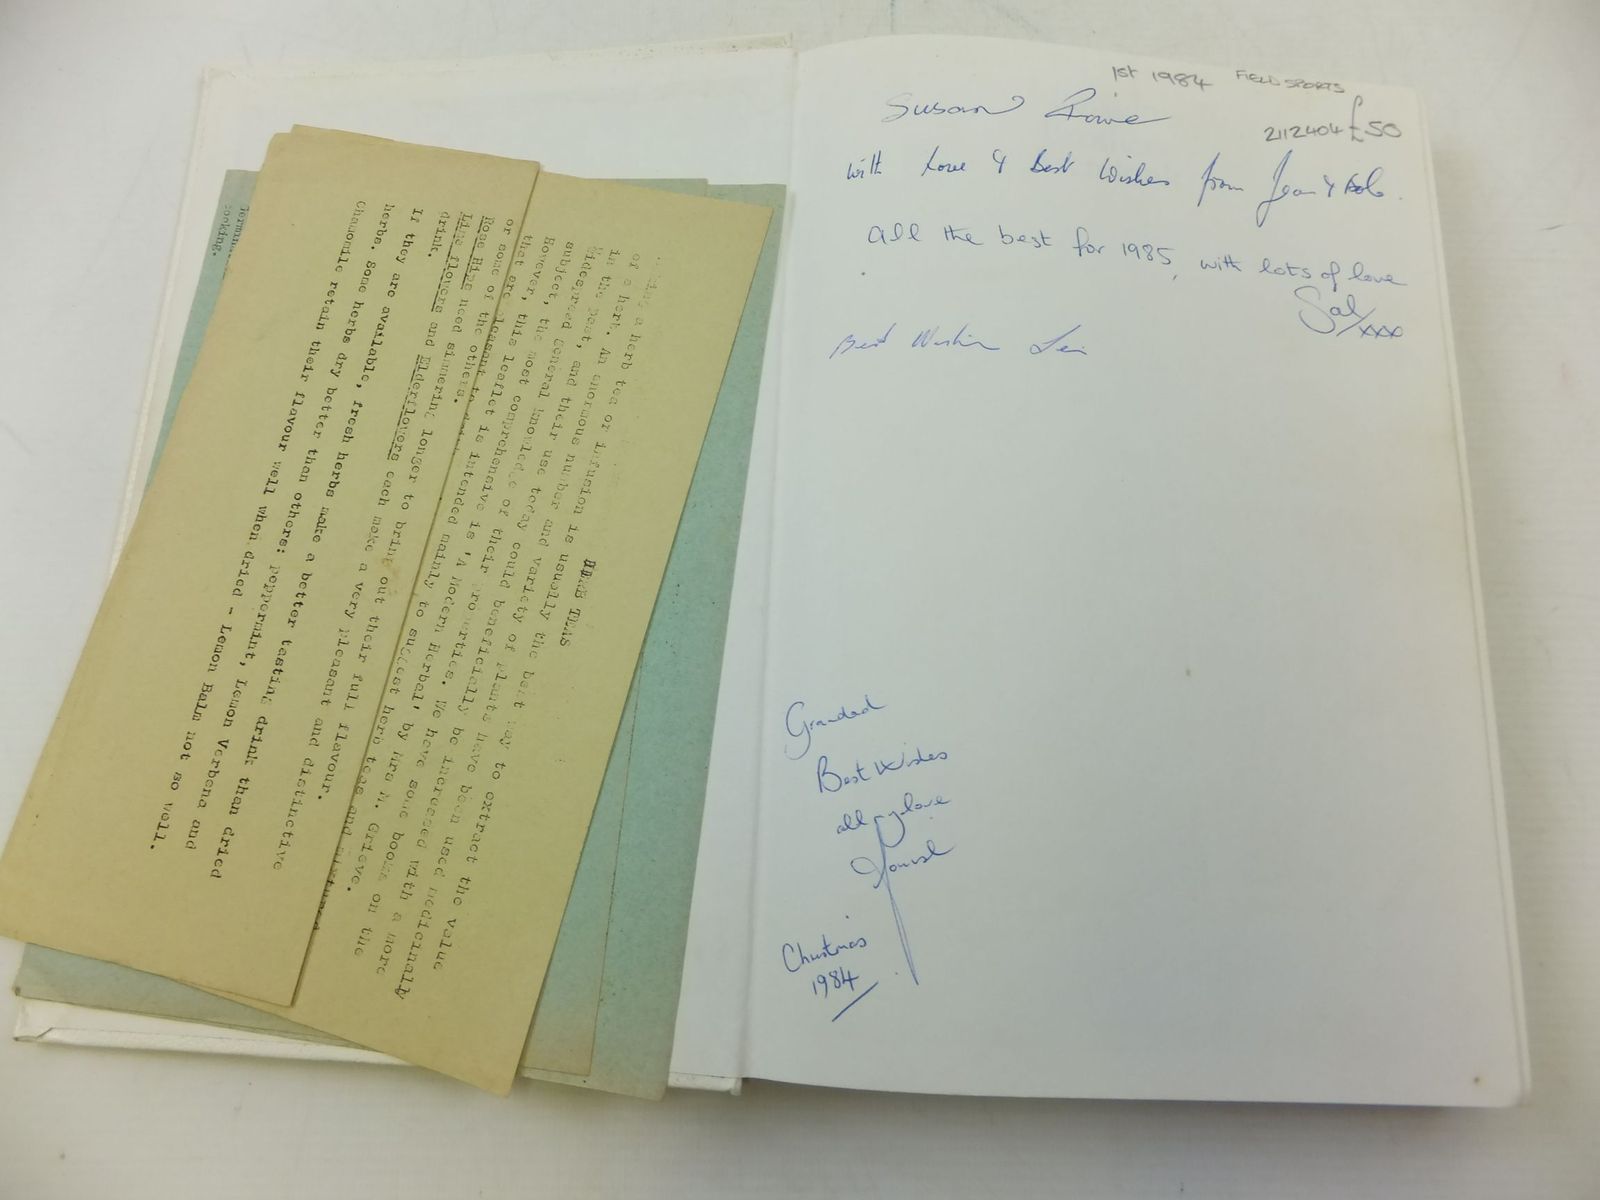 1st 1984 FIELD SPORTS
2112404 £50
Susan
with love & Best Wishes from Jean & Bob.
All the best for 1985, with lots of love
Sal xxx
Best Wishes
Grandad
Best Wishes
all my love
Christmas
1984
HERB TEAS
a herb tea or
of a herb. An infusion is usually the best way to extract the value
in the past, enormous number and variety of plants have been used medicinally
subject, and their use today could beneficially be increased with a more
widespread general knowledge of their properties. We have some books on the
However, the most comprehensive is 'A Modern Herbal', by Mrs M. Grieve.
that are pleasant to
or some of the others.
Rose Hips need simmering longer to bring out their full flavour.
Lime flowers and Elderflowers each make a very pleasant and distinctive
drink.
If they are available, fresh herbs make a better tasting drink than dried
herbs. Some herbs dry better than others: Peppermint, Lemon Verbena and
Chamomile retain their flavour well when dried - Lemon Balm not so well.
cooking.